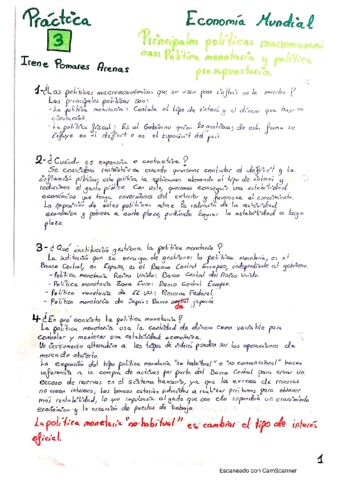 Práctica 3
Economía Mundial
Irene Pomares Arenas
Principales políticas macroeconómicas: Política monetaria y política presupuestaria.
1-¿Las políticas macroeconómicas que se usan para influir en la
Las principales políticas son:
-La política monetaria: Controla el tipo de interés y el dinero que hay en circulación.
-La política fiscal: Es el Gobierno quien de esta forma se influye en el déficit o en el del país.
2-¿Cuándo es expansiva o contractiva?
Se considera restrictiva cuando queremos controlar el déficit y la
inflación esta política la aplicamos elevando el tipo de interés y
reducimos el gasto público. Con esto, queremos conseguir una estabilidad
económica que tenga del exterior y favorezca el crecimiento.
La de estas políticas sobre la de la actividad
económica y a corto plazo, pudiendo la estabilidad a largo
plazo.
3-¿Qué institución gestiona la política monetaria?
La institución que se encarga de gestionar la política monetaria, es el
Banco Central, en España, es el Banco Central Europeo, independiente al gobierno.
-Política monetaria Reino Unido: Banco Central del Reino Unido.
-Política monetaria Zona Euro: Banco Central Europeo.
-Política monetaria de EE UU: Reserva Federal.
-Política monetaria de Japón: Banco de Japón
4-¿En qué consiste la política monetaria?
La política monetaria usa la cantidad de dinero como variable para
controlar y mantener una estabilidad económica.
Un instrumento alternativo a los tipos de interés pueden ser las operaciones de
mercado abierto.
La expansión del tipo política monetaria "no habitual" o "no convencional" hacen
referencia a la compra de activos por parte del Banco Central para crear un
exceso de reservas en el sistema bancario, ya que los excesos de reservas
no crean intereses, los bancos estarían a realizar préstamos para obtener
más rentabilidad, lo que impulsaría el gasto que con ello un crecimiento
económico y la creación de puestos de trabajo.
La política monetaria "no habitual" es cambiar el tipo de interés
oficial.
1
Escaneado con CamScanner